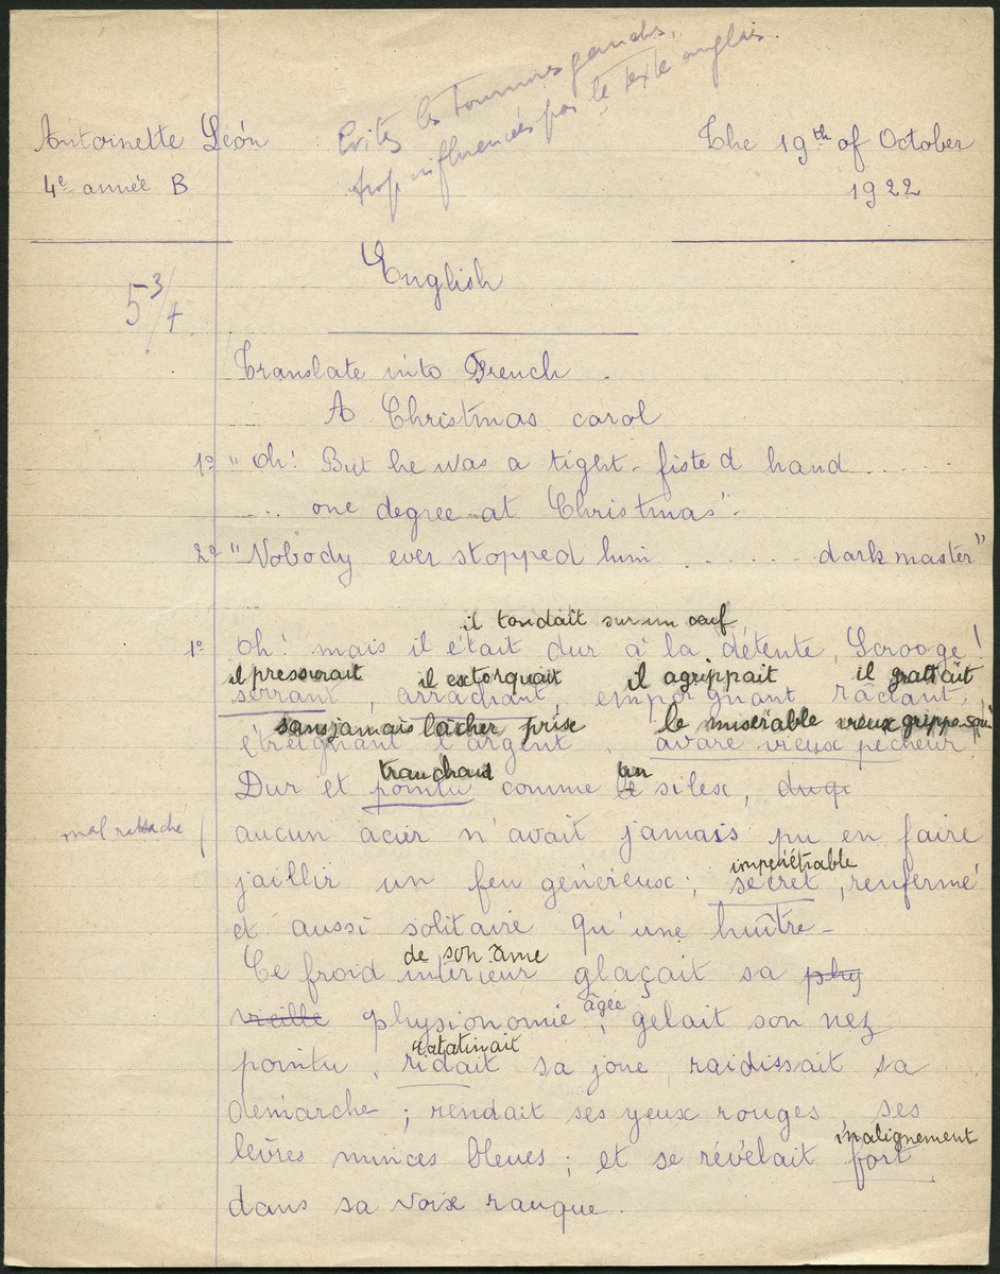 Evitez les tournures gauches,
trop influencées par le texte anglais.
Antoinette Léon
The 19th of October
4e année B
1922
English
5 3/4
Translate into French.
A Christmas carol
1º "Oh! But he was a tight-fisted hand .......
... one degree at Christmas".
2º "Nobody ever stopped him ....... dark master"
il tondait sur un œuf
1º Oh! mais il était dur à la détente, Scrooge!
il pressurait il extorquait il agrippait il grattait
serrant, arrachant, empoignant râclant,
sans jamais lâcher prise le misérable vieux grippe-sou
étreignant l'argent, avare vieux pécheur!
tranchant un
Dur et pointu comme le silex, duqu
mal rattaché
aucun acier n'avait jamais pu en faire
impénétrable
jaillir un feu généreux; secret, renfermé
et aussi solitaire qu'une huître-
de son âme
Ce froid intérieur glaçait sa phy
vieille physionomie âgée, gelait son nez
ratatinait
pointu, ridait sa joue, raidissait sa
démarche; rendait ses yeux rouges, ses
malignement
lèvres minces bleues; et se révélait fort
dans sa voix rauque.